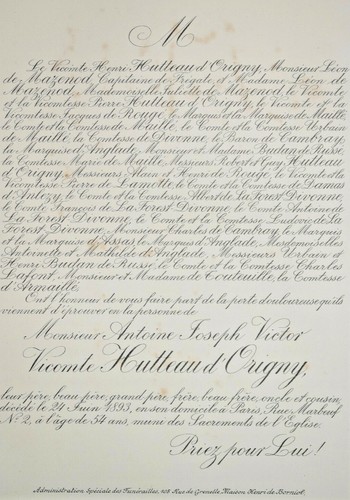 M
Le Vicomte Henri Hutteau d'Origny, Monsieur Léon
de Mazenod, Capitaine de Frégate, et Madame Léon de
Mazenod, Mademoiselle Juliette de Mazenod, le Vicomte
et la Vicomtesse Pierre Hutteau d'Origny, le Vicomte et la
Vicomtesse Jacques de Rougé, le Marquis et la Marquise de Maillé,
le Comte et la Comtesse de Maillé, le Comte et la Comtesse Urbain
de Maillé, la Comtesse de Divonne, le Baron de Cambray,
la Marquise d'Anglade, Monsieur et Madame Budan de Russé,
la Comtesse Marie de Maillé, Messieurs Robert et Guy Hutteau
d'Origny, Messieurs Alain et Henri de Rougé, le Vicomte et la
Vicomtesse Pierre de Lamotte, le Comte et la Comtesse de Damas
d'Anlezy, le Comte et la Comtesse Albert de La Forest Divonne,
le Comte François de La Forest Divonne, le Comte Antoine de
La Forest Divonne, le Comte et la Comtesse Ludovic de La
Forest Divonne, Monsieur Charles de Cambray, le Marquis
et la Marquise d'Assas, le Marquis d'Anglade, Mesdemoiselles
Antoinette et Mathilde d'Anglade, Messieurs Urbain et
Henri Budan de Russé, le Comte et la Comtesse Charles
Lafont, Monsieur et Madame de Couteuille, la Comtesse
d'Armaillé
Ont l'honneur de vous faire part de la perte douloureuse qu'ils
viennent d'éprouver en la personne de
Monsieur Antoine Joseph Victor
Vicomte Hutteau d'Origny,
leur père, beau père, grand père, frère, beau frère, oncle et cousin,
décédé le 24 Juin 1893, en son domicile à Paris, Rue Marbeuf
N° 2, à l'âge de 54 ans, muni des Sacrements de l'Eglise.
Priez pour Lui!
Administration Spéciale des Funérailles, 108 Rue de Grenelle, Maison Henri de Borniol.